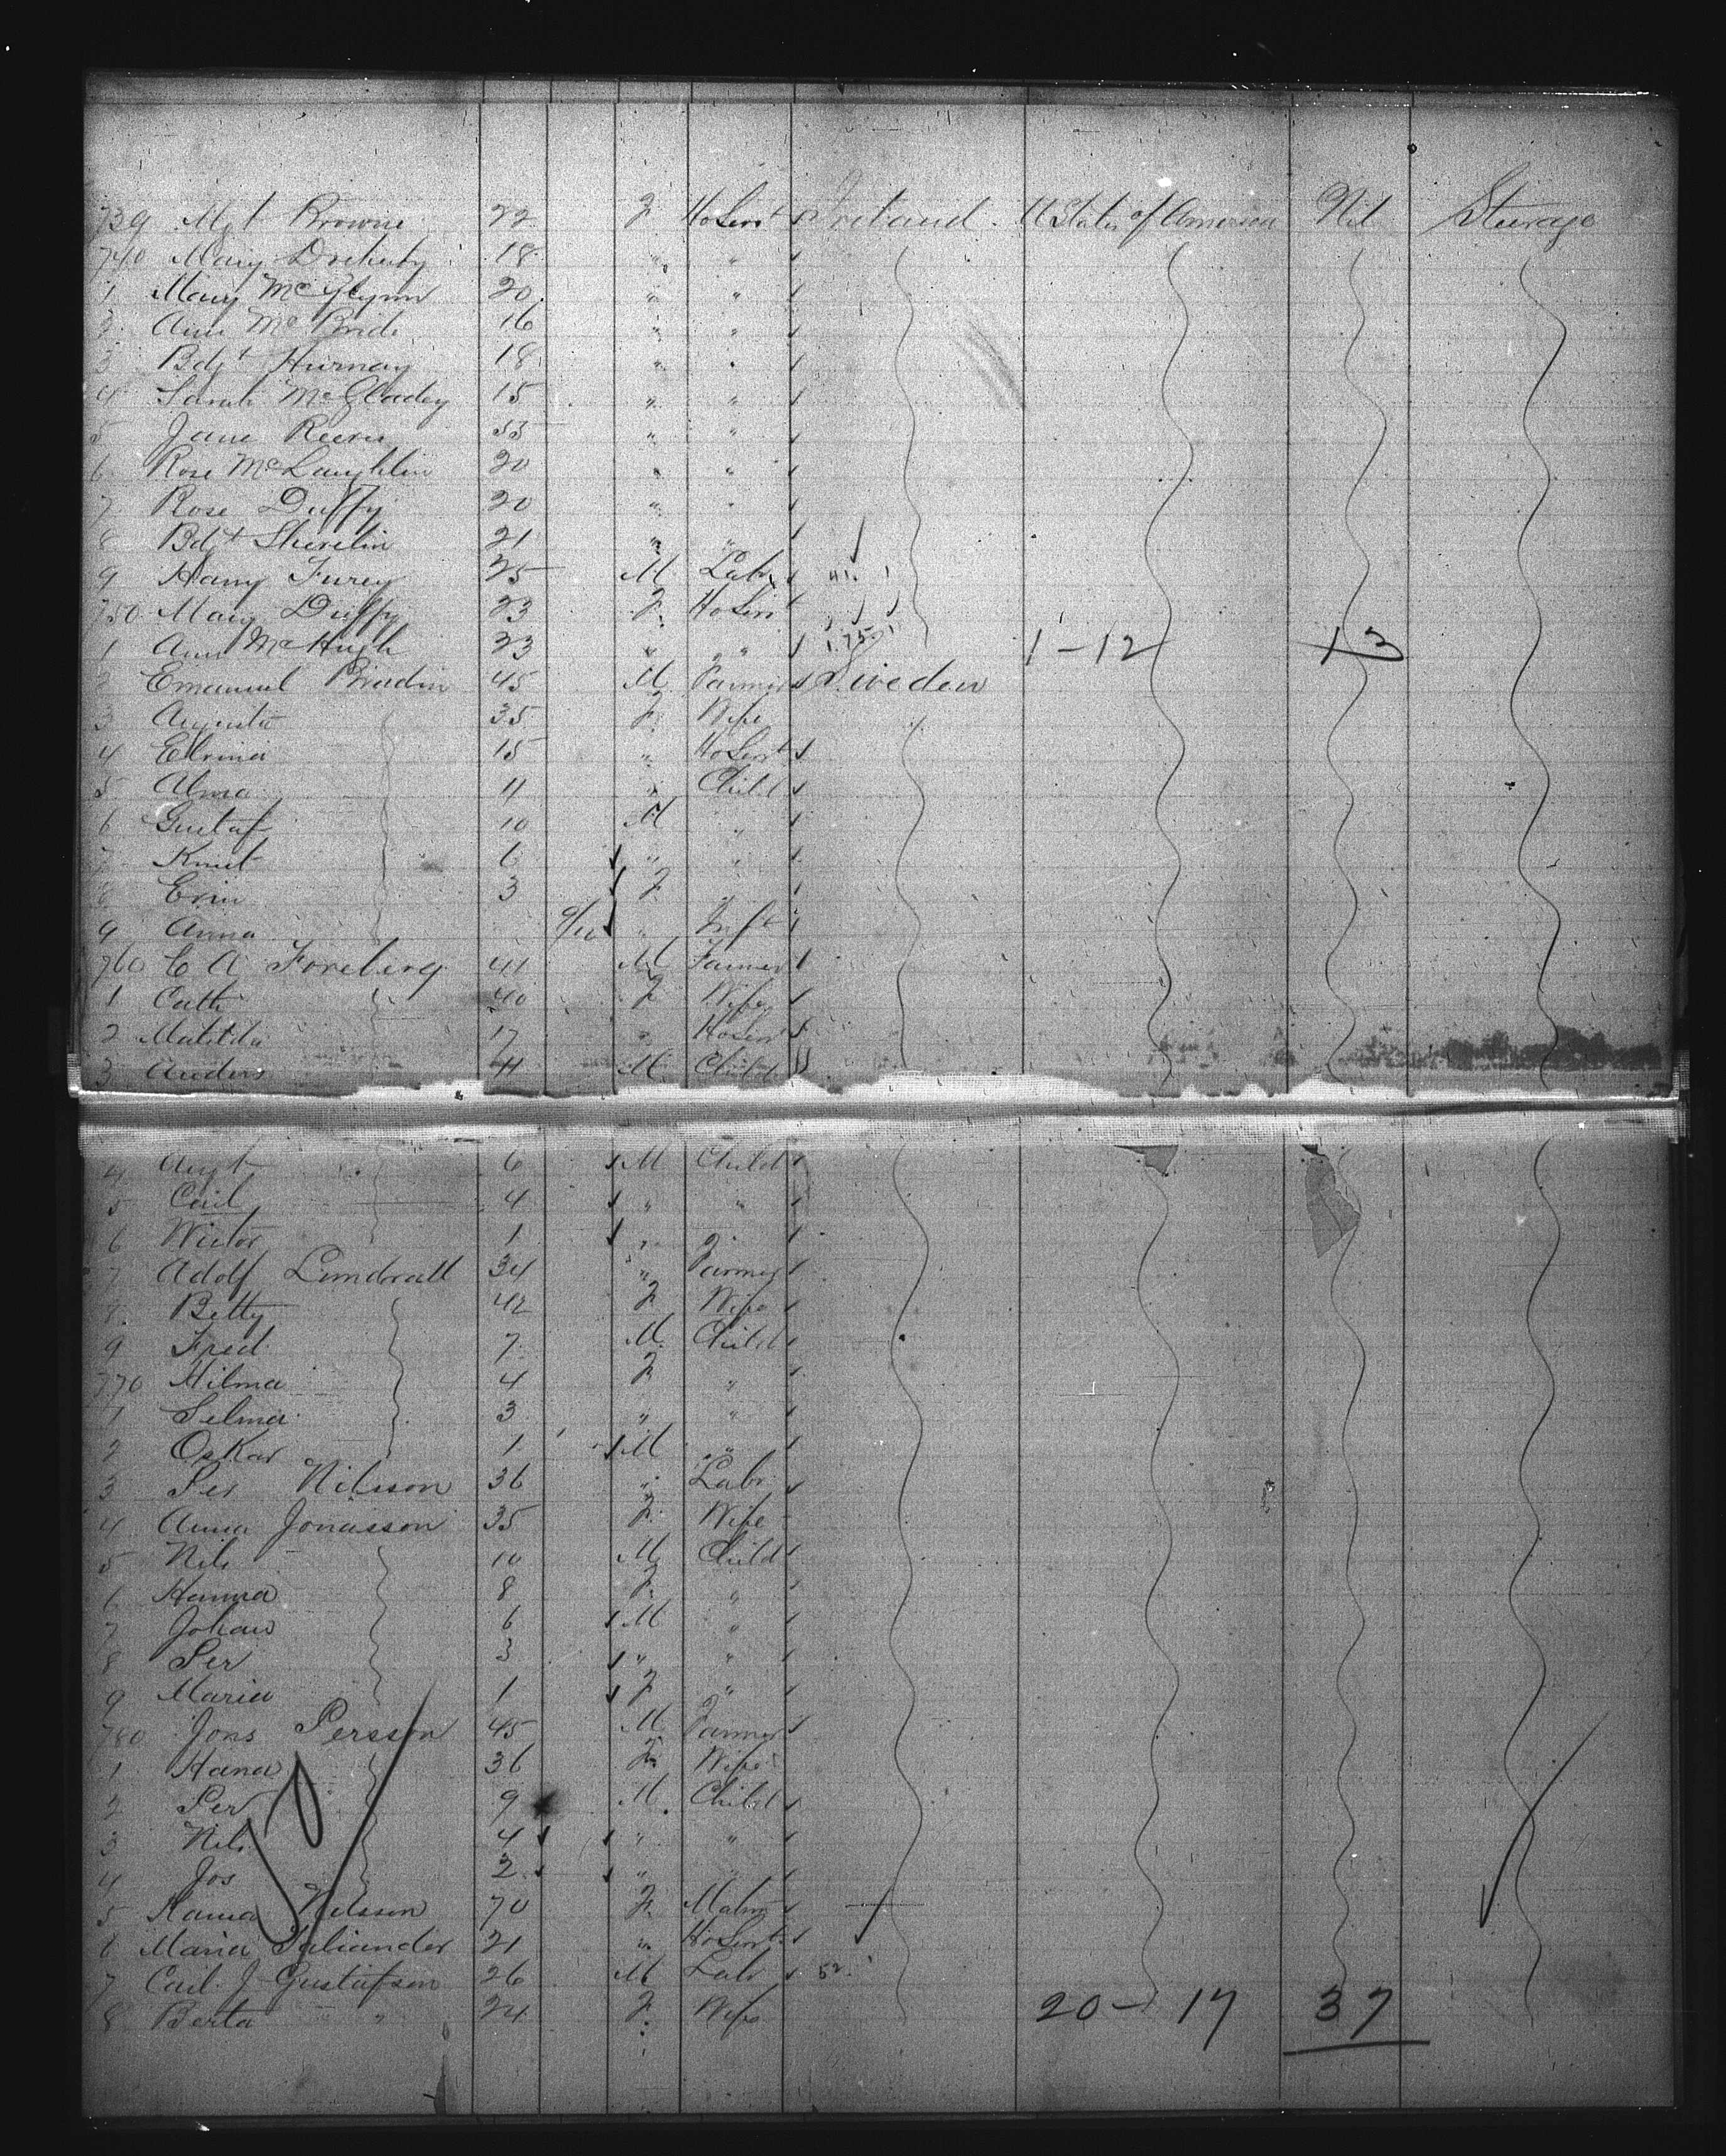 739 Mgt Browne 22 F HoServt Ireland U States of America Nil Steerage
740 Mary Doherty 18 " "
1 Mary McGlynn 20 " "
2 Ann McBride 16 " "
3 Bdgt 18 " "
4 Sarah McGladey 15 " "
5 Jane 33 " "
6 Rose McLaughlin 20 " "
7 Rose Duffy 20 " "
8 Bdgt Sherelin 21 " "
9 Harry Furey 25 M Labr
750 Mary Duffy 23 F HoServt
1 Ann McHugh 23 " " 1-12 13
2 Emanuel 45 M Farmer Sweden
3 Augusta 35 F Wife
4 Elvina 15 " HoServt
5 Alma 11 " Child
6 Gustaf 10 M "
7 Knut 6 " "
8 3 F "
9 Anna 9/10 " Inft
760 C A Foreberg 41 M Farmer
1 Cath 40 F Wife
2 Matilda 17 " HoServt
3 Anders M Child
4 Augt 6 M Child
5 Carl 4 " "
6 Wictor 1 " "
7 Adolf 34 " Farmer
8 Betty 42 F Wife
9 Fred 7 M Child
770 Hilma 4 F "
1 Selma 3 " "
2 Oskar 1 M "
3 Per Nilsson 36 " Labr
4 Anna Jonasson 35 F Wife
5 Nils 10 M Child
6 Hanna 8 F "
7 Johan 6 M "
8 Per 3 " "
9 Maria 1 F "
780 Jons Persson 45 M Farmer
1 Hana 36 F Wife
2 Per 9 M Child
3 Nils 4 " "
4 Jos 2 " "
5 Hanna Nilsson 70 F
6 Maria Saliander 21 " HoServt
7 Carl J Gustafson 26 M Labr 52
8 Berta " 24 F Wife 20-17 37